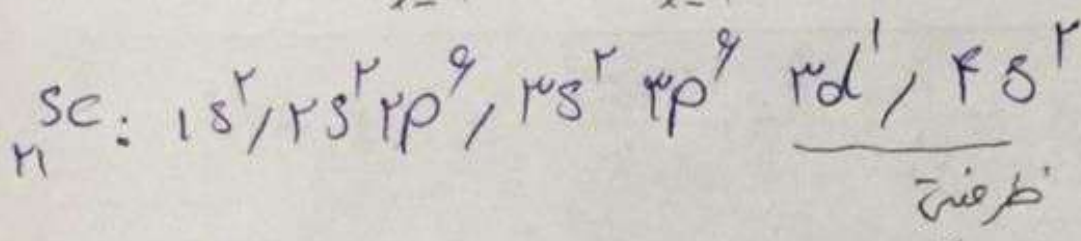 ₂₁Sc: ۱s^۲, ۲s^۲ ۲p^۶, ۳s^۲ ۳p^۶ ۳d^۱, ۴s^۲
ظرفیت